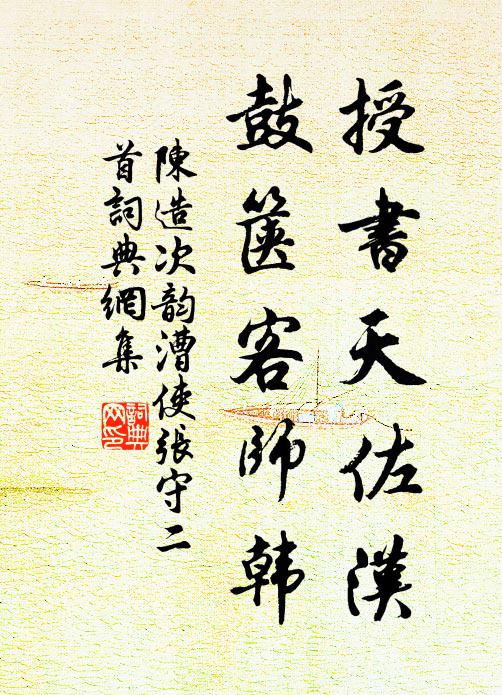 授書天佐漢
鼓篋客師韩
陳造次韵漕使張守二
首詞典網集
詞典
网印